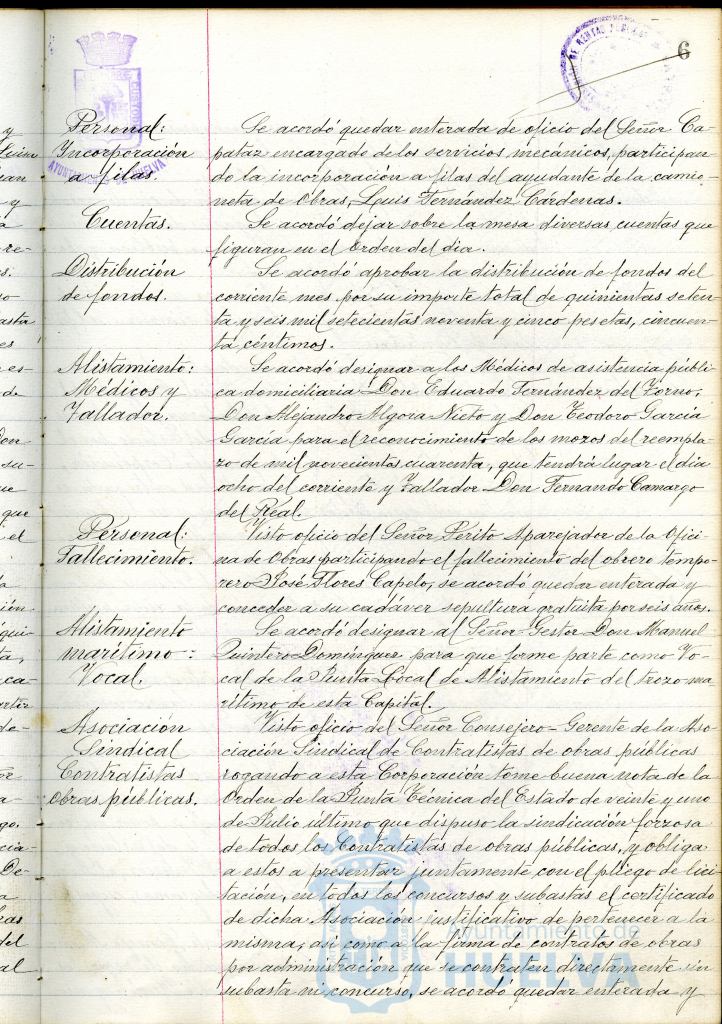 6
Personal:
Incorporación
a filas.
Se acordó quedar enterada de oficio del Señor Ca-
pataz encargado de los servicios mecánicos, participan-
do la incorporación a filas del ayudante de la camio-
neta de Obras, Luis Fernández Cárdenas.
Cuentas.
Se acordó dejar sobre la mesa diversas cuentas que
figuran en el Orden del dia.
Distribución
de fondos.
Se acordó aprobar la distribución de fondos del
corriente mes por su importe total de quinientas seten-
ta y seis mil setecientas noventa y cinco pesetas, cincuen-
ta céntimos.
Alistamiento:
Médicos y
Tallador.
Se acordó designar a los Médicos de asistencia públi-
ca domiciliaria Don Eduardo Fernández del Torno,
Don Alejandro Algora Nieto y Don Teodoro García
García para el reconocimiento de los mozos del reempla-
zo de mil novecientos cuarenta, que tendrá lugar el dia
ocho del corriente y Tallador Don Fernando Camargo
del Real.
Personal:
Fallecimiento.
Visto oficio del Señor Perito Aparejador de la Ofici-
na de Obras participando el fallecimiento del obrero tempo-
rero José Flores Capelo, se acordó quedar enterada y
conceder a su cadáver sepultura gratuita por seis años.
Alistamiento
marítimo:
Vocal.
Se acordó designar al Señor Gestor Don Manuel
Quintero Domínguez para que forme parte como Vo-
cal de la Junta Local de Alistamiento del trozo ma-
rítimo de esta Capital.
Asociación
Sindical
Contratistas
obras públicas.
Visto oficio del Señor Consejero-Gerente de la Aso-
ciación Sindical de Contratistas de obras públicas
rogando a esta Corporación tome buena nota de la
Orden de la Junta Técnica del Estado de veinte y uno
de Julio último que dispuso la sindicación forzosa
de todos los Contratistas de obras públicas, y obliga
a estos a presentar juntamente con el pliego de lici-
tación, en todos los concursos y subastas el certificado
de dicha Asociación justificativo de pertenecer a la
misma, así como a la firma de contratos de obras
por administración que se contraten directamente sin
subasta ni concurso, se acordó quedar enterada y
AYUNTAMIENTO DE HUELVA
Ayuntamiento de
HUELVA